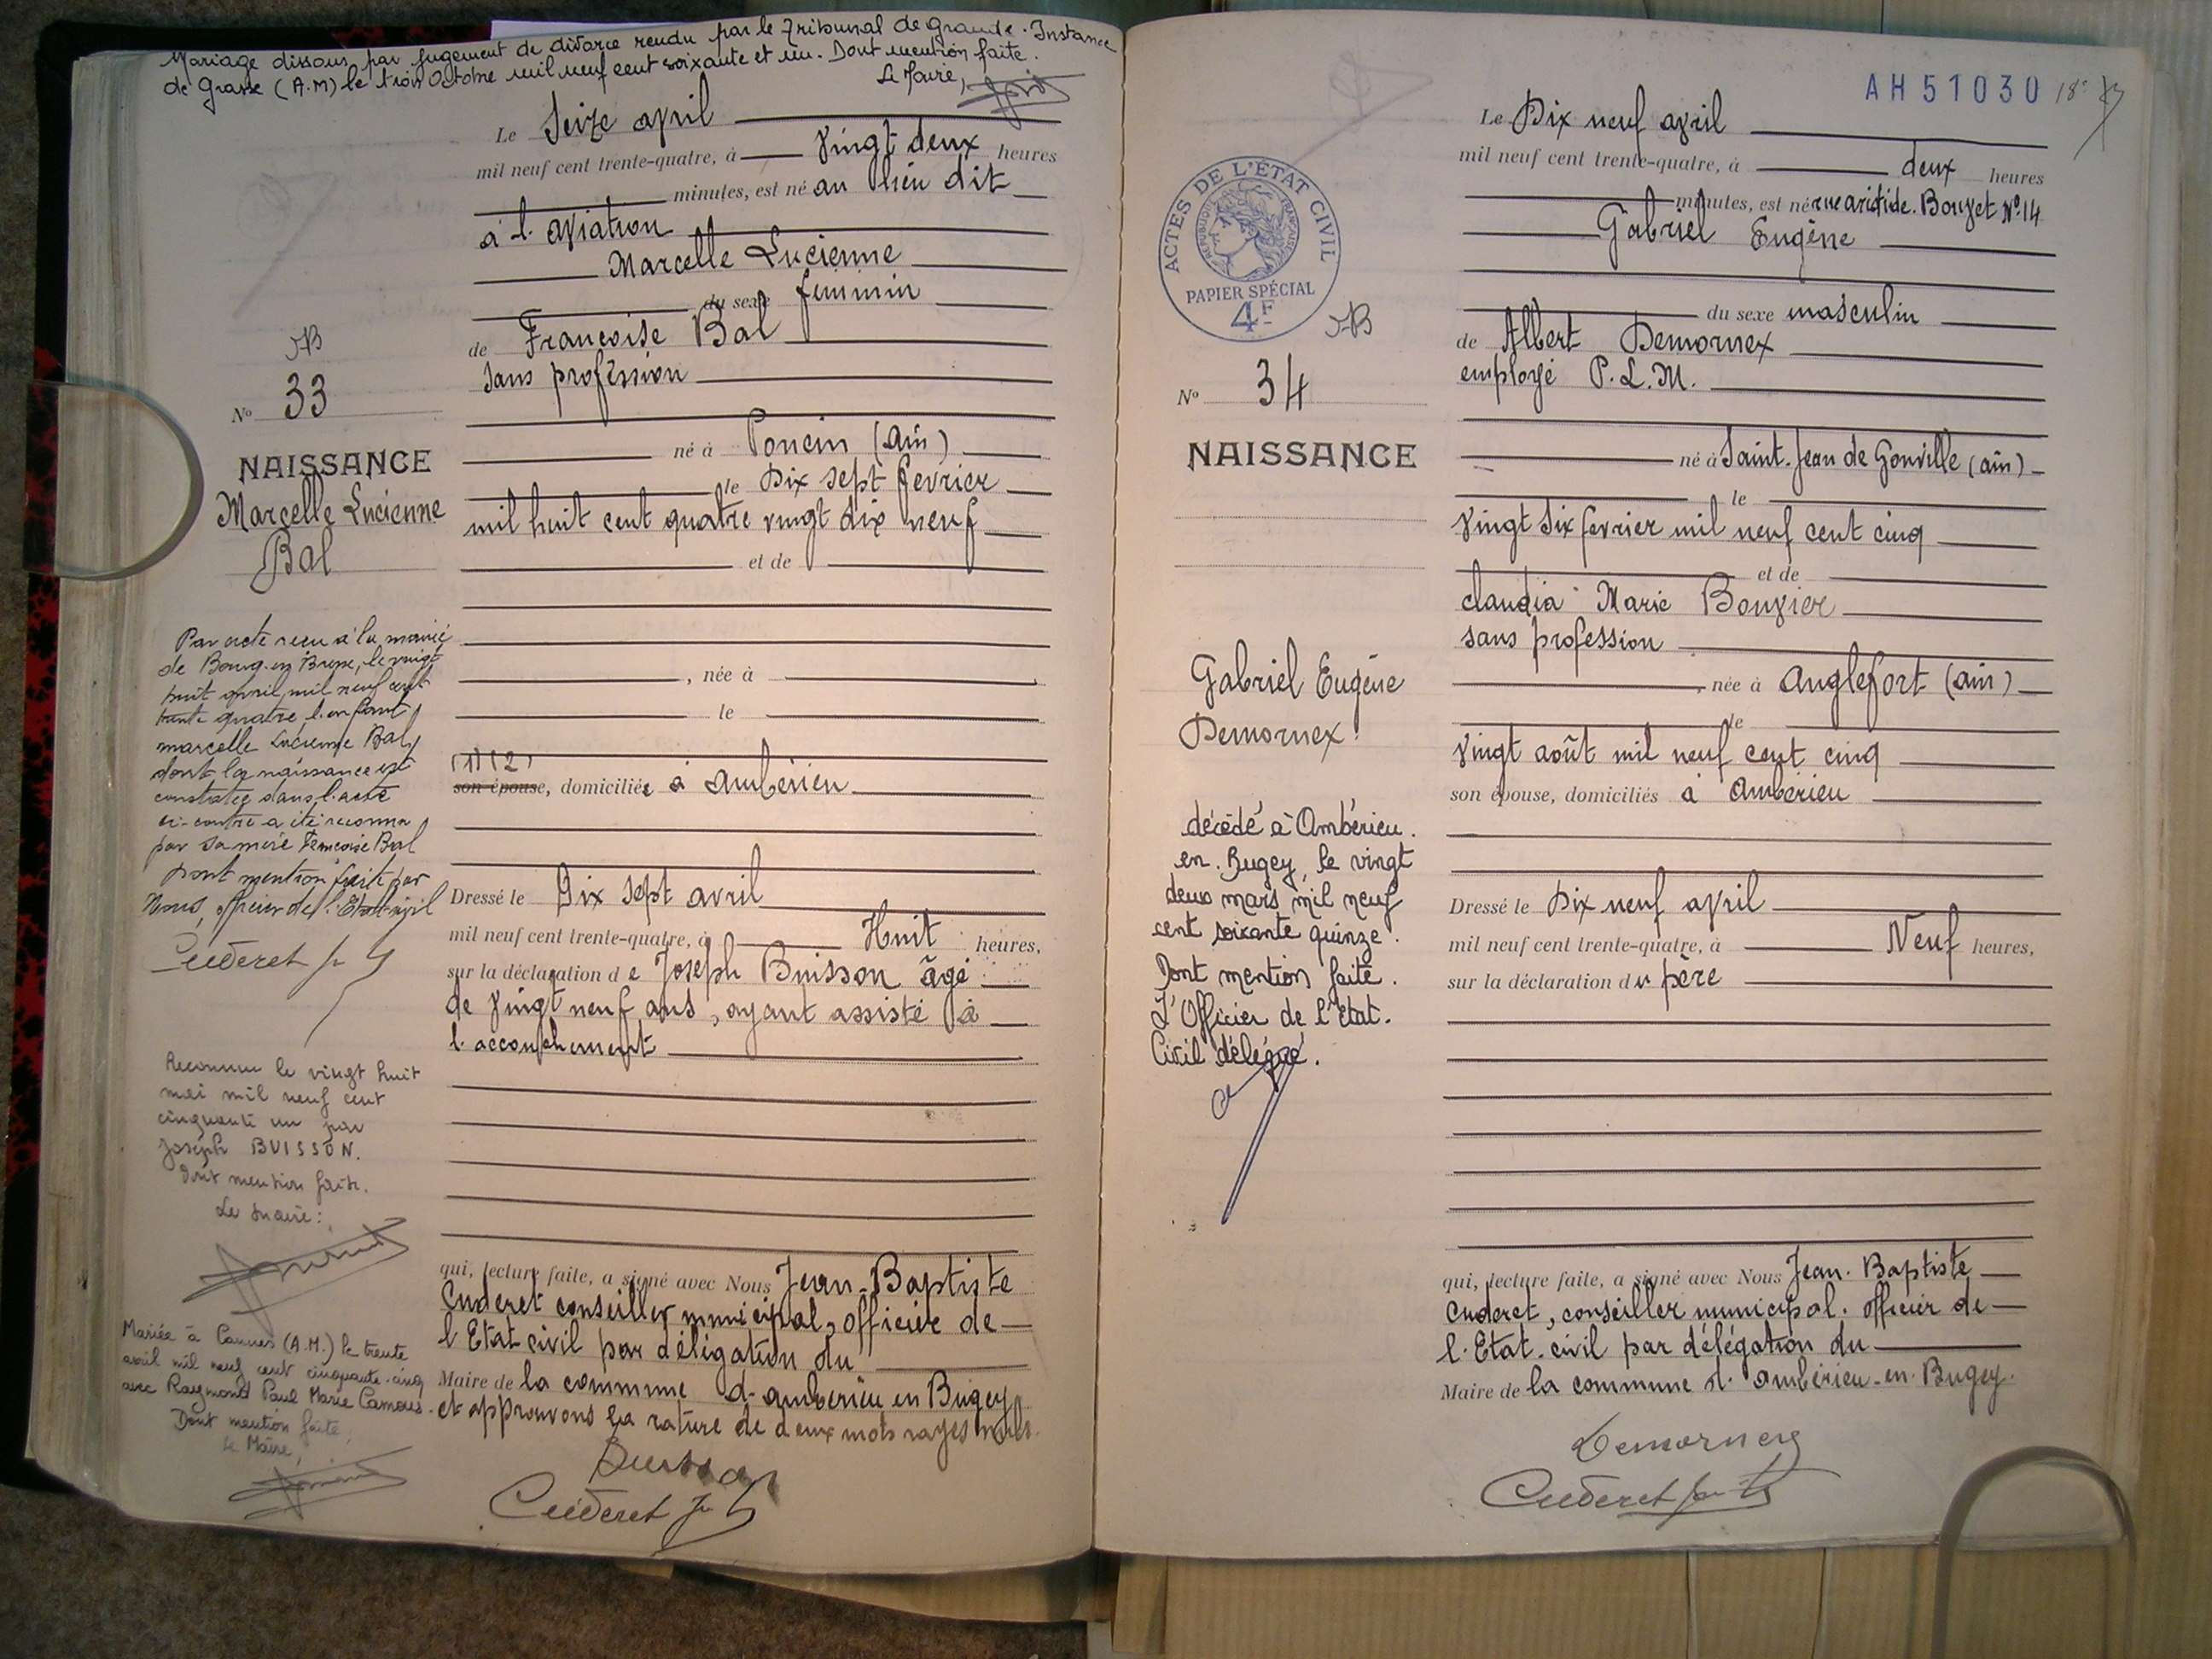 Mariage dissous par jugement de divorce rendu par le Tribunal de Grande Instance
de Grasse (A.M) le trois Octobre mil neuf cent soixante et un. Dont mention faite.
Le Maire,
Le Seize avril
mil neuf cent trente-quatre, à vingt deux heures
minutes, est né au lieu dit
à l'aviation
Marcelle Lucienne
du sexe féminin
de Francoise Bal
sans profession
né à Poncin (Ain)
le Dix sept février
mil huit cent quatre vingt dix neuf
et de
, née à
le
(1) (2)
son épouse, domiciliée à Ambérieu
Dressé le Dix sept avril
mil neuf cent trente-quatre, à Huit heures,
sur la déclaration de Joseph Buisson âgé
de vingt neuf ans, ayant assisté à
l'accouchement
qui, lecture faite, a signé avec Nous Jean-Baptiste
Cuderet conseiller municipal, officier de
l'Etat civil par délégation du
Maire de la commune d'Ambérieu en Bugey
et approuvons la rature de deux mots rayés nuls.
Buisson
Cuderet
JB
No 33
NAISSANCE
Marcelle Lucienne
Bal
Par acte recu à la mairie
de Bourg-en-Bresse, le vingt
huit avril mil neuf cent
trente quatre l'enfant
marcelle Lucienne Bal,
dont la naissance est
constatée dans l'acte
ci-contre a été reconnu
par sa mère Francoise Bal
Dont mention faite par
Nous, officier de l'Etat-civil
Cuderet
Reconnue le vingt huit
mai mil neuf cent
cinquante un par
Joseph BUISSON.
Dont mention faite.
Le Maire:
Mariée à Cannes (A.M.) le trente
avril mil neuf cent cinquante-cinq
avec Raymond Paul Marie Camous.
Dont mention faite,
Le Maire,
AH51030
18e
ACTES DE L'ÉTAT CIVIL
RÉPUBLIQUE FRANÇAISE
PAPIER SPÉCIAL
4F
JB
No 34
NAISSANCE
Gabriel Eugène
Demornex
décédé à Ambérieu.
en. Bugey, le vingt
deux mars mil neuf
cent soixante quinze.
Dont mention faite.
L'Officier de l'Etat.
Civil délégué.
Le Dix neuf avril
mil neuf cent trente-quatre, à deux heures
minutes, est né rue aristide. Bouvet No.14
Gabriel Eugène
du sexe masculin
de Albert Demornex
employé P.L.M.
né à Saint-Jean de Gonville (ain)
le
vingt six fevrier mil neuf cent cinq
et de
claudia Marie Bouvier
sans profession
, née à Anglefort (ain)
le
vingt août mil neuf cent cinq
son épouse, domiciliés à Ambérieu
Dressé le Dix neuf avril
mil neuf cent trente-quatre, à Neuf heures,
sur la déclaration du père
qui, lecture faite, a signé avec Nous Jean-Baptiste
Cuderet, conseiller municipal. officier de
l'Etat-civil par délégation du
Maire de la commune d'Ambérieu-en-Bugey.
Demornex
Cuderet